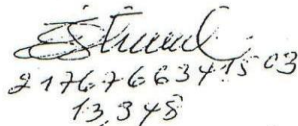 21767663415 03
13,348